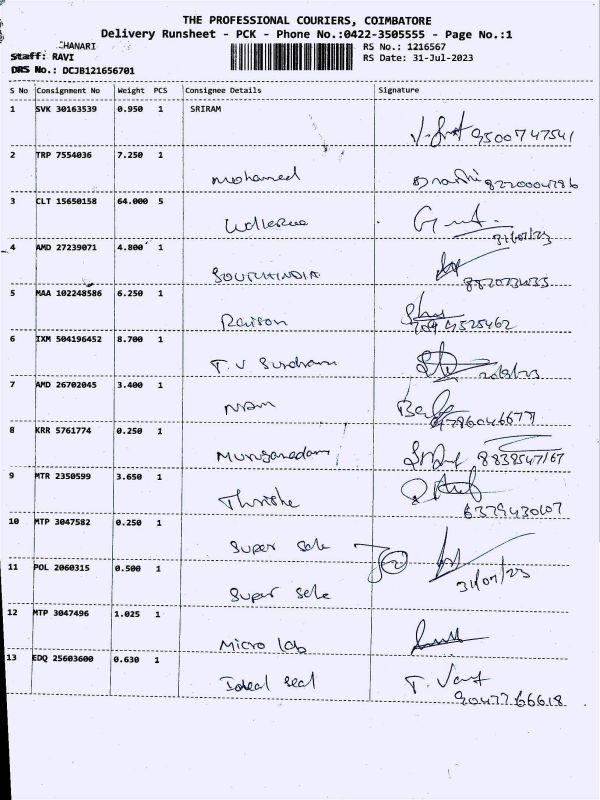 THE PROFESSIONAL COURIERS, COIMBATORE
Delivery Runsheet - PCK - Phone No.:0422-3505555 - Page No.:1
HANARI
Staff: RAVI
RS No.: 1216567
RS Date: 31-Jul-2023
DRS No.: DCJB121656701
S No Consignment No Weight PCS Consignee Details Signature
1 SVK 30163539 0.950 1 SRIRAM
9500747541
2 TRP 7554036 7.250 1
Mohamed 8220004286
3 CLT 15650158 64.000 5
31/07/23
4 AMD 27239071 4.800 1
SOUTHINDIA
5 MAA 102248586 6.250 1
6 IXM 504196452 8.700 1
T. V Sundram
7 AMD 26702045 3.400 1
8 KRR 5761774 0.250 1
8838547167
9 MTR 2350599 3.650 1
10 MTP 3047582 0.250 1
Super Sale
11 POL 2060315 0.500 1
31/07/23
Super Sale
12 MTP 3047496 1.025 1
Micro lab
13 EDQ 25603600 0.630 1
Ideal seal
9047766618